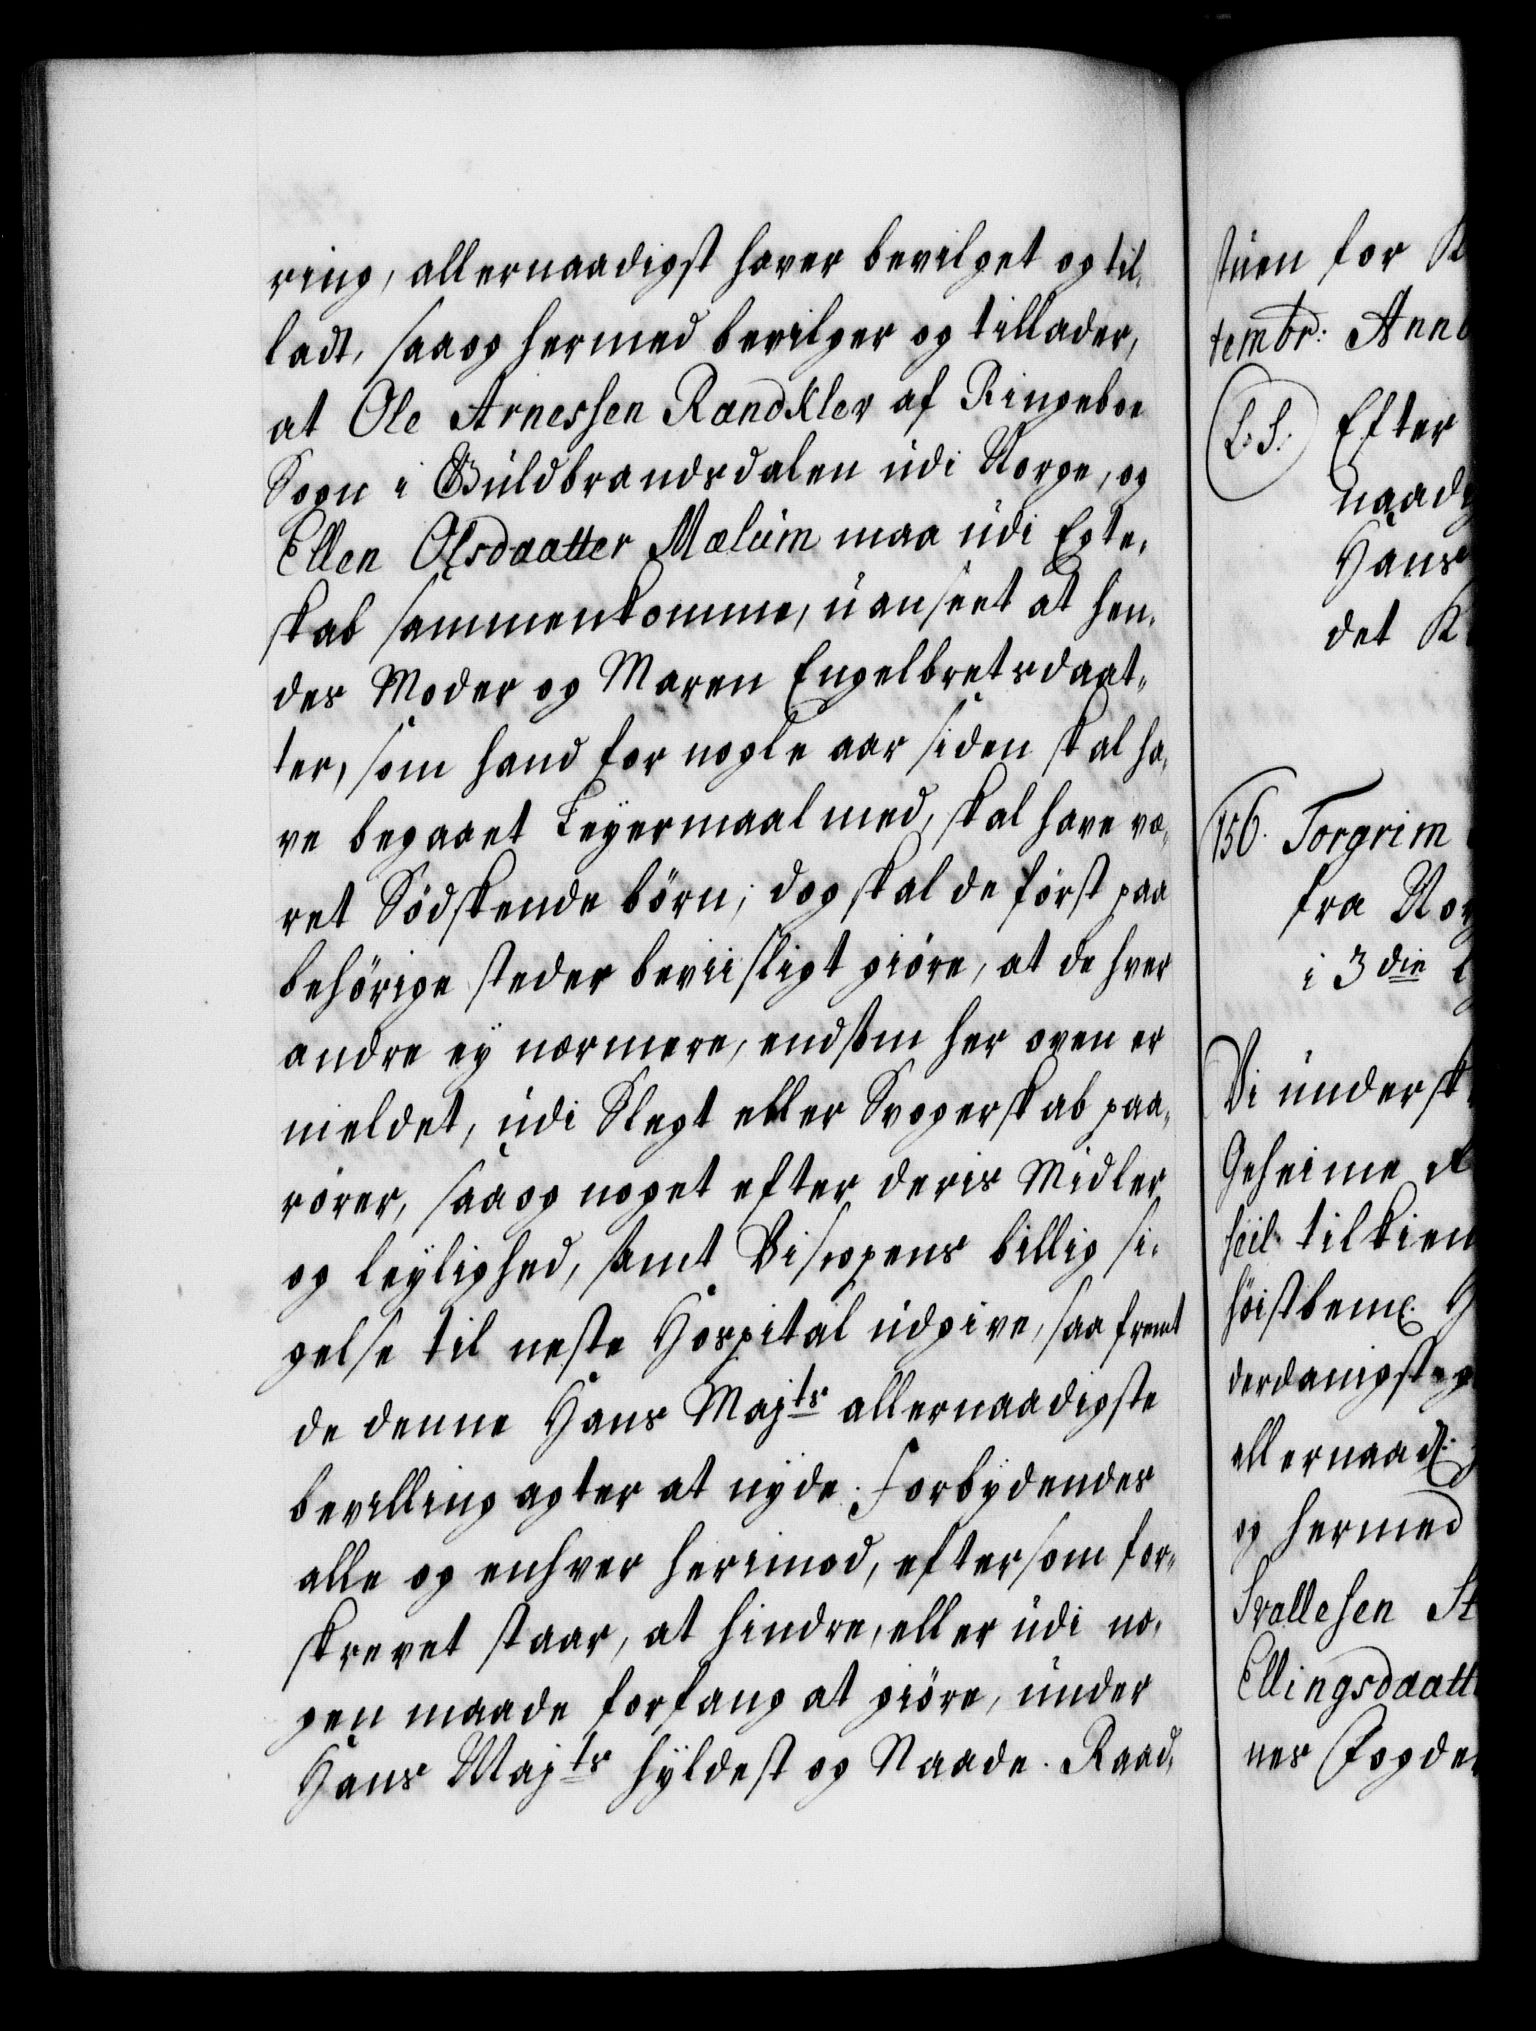 ring, allernaadigst haver bevilget og til-
ladt, saa og hermed bevilger og tillader,
at Ole Arnessen Randkler af Ringeboe
Sogn i Guldbrandsdalen udi Norge, og
Ellen Olsdaatter Mælum maa udi Egte-
skab sammenkomme, uanseet at hen-
des Moder og Maren Engelbretsdaat-
ter, som hand for nogle aar siden skal ha-
ve begaaet Leyermaal med, skal have væ-
ret Södskende börn; dog skal de först paa
behörige steder beviisligt giöre, at de hver
andre ey nærmere, end som her oven er
meldet, udi Slegt eller Svogerskab paa-
rörer, saa og noget efter deris Midler
og leylighed, samt Biscopens billig si-
gelse til neste Hospital udgive, saa fremt
de denne Hans Majts allernaadigste
bevilling agter at nyde. Forbydendes
alle og enhver herimod, eftersom for-
skrevet staar, at hindre, eller udi no-
gen maade forfang at giöre, under
Hans Majts hyldest og Naade. Raad-
stuen for K
tembr: Anno
L. S. Efter
naadg
Hans
det K
156. Torgrim
fra Nor
i 3die
Vi undersk
Geheime
seil tilkien
höistbem
derdanigst
allernaad
og hermed
Svallesen St
Ellingsdaatt
nes Fogde